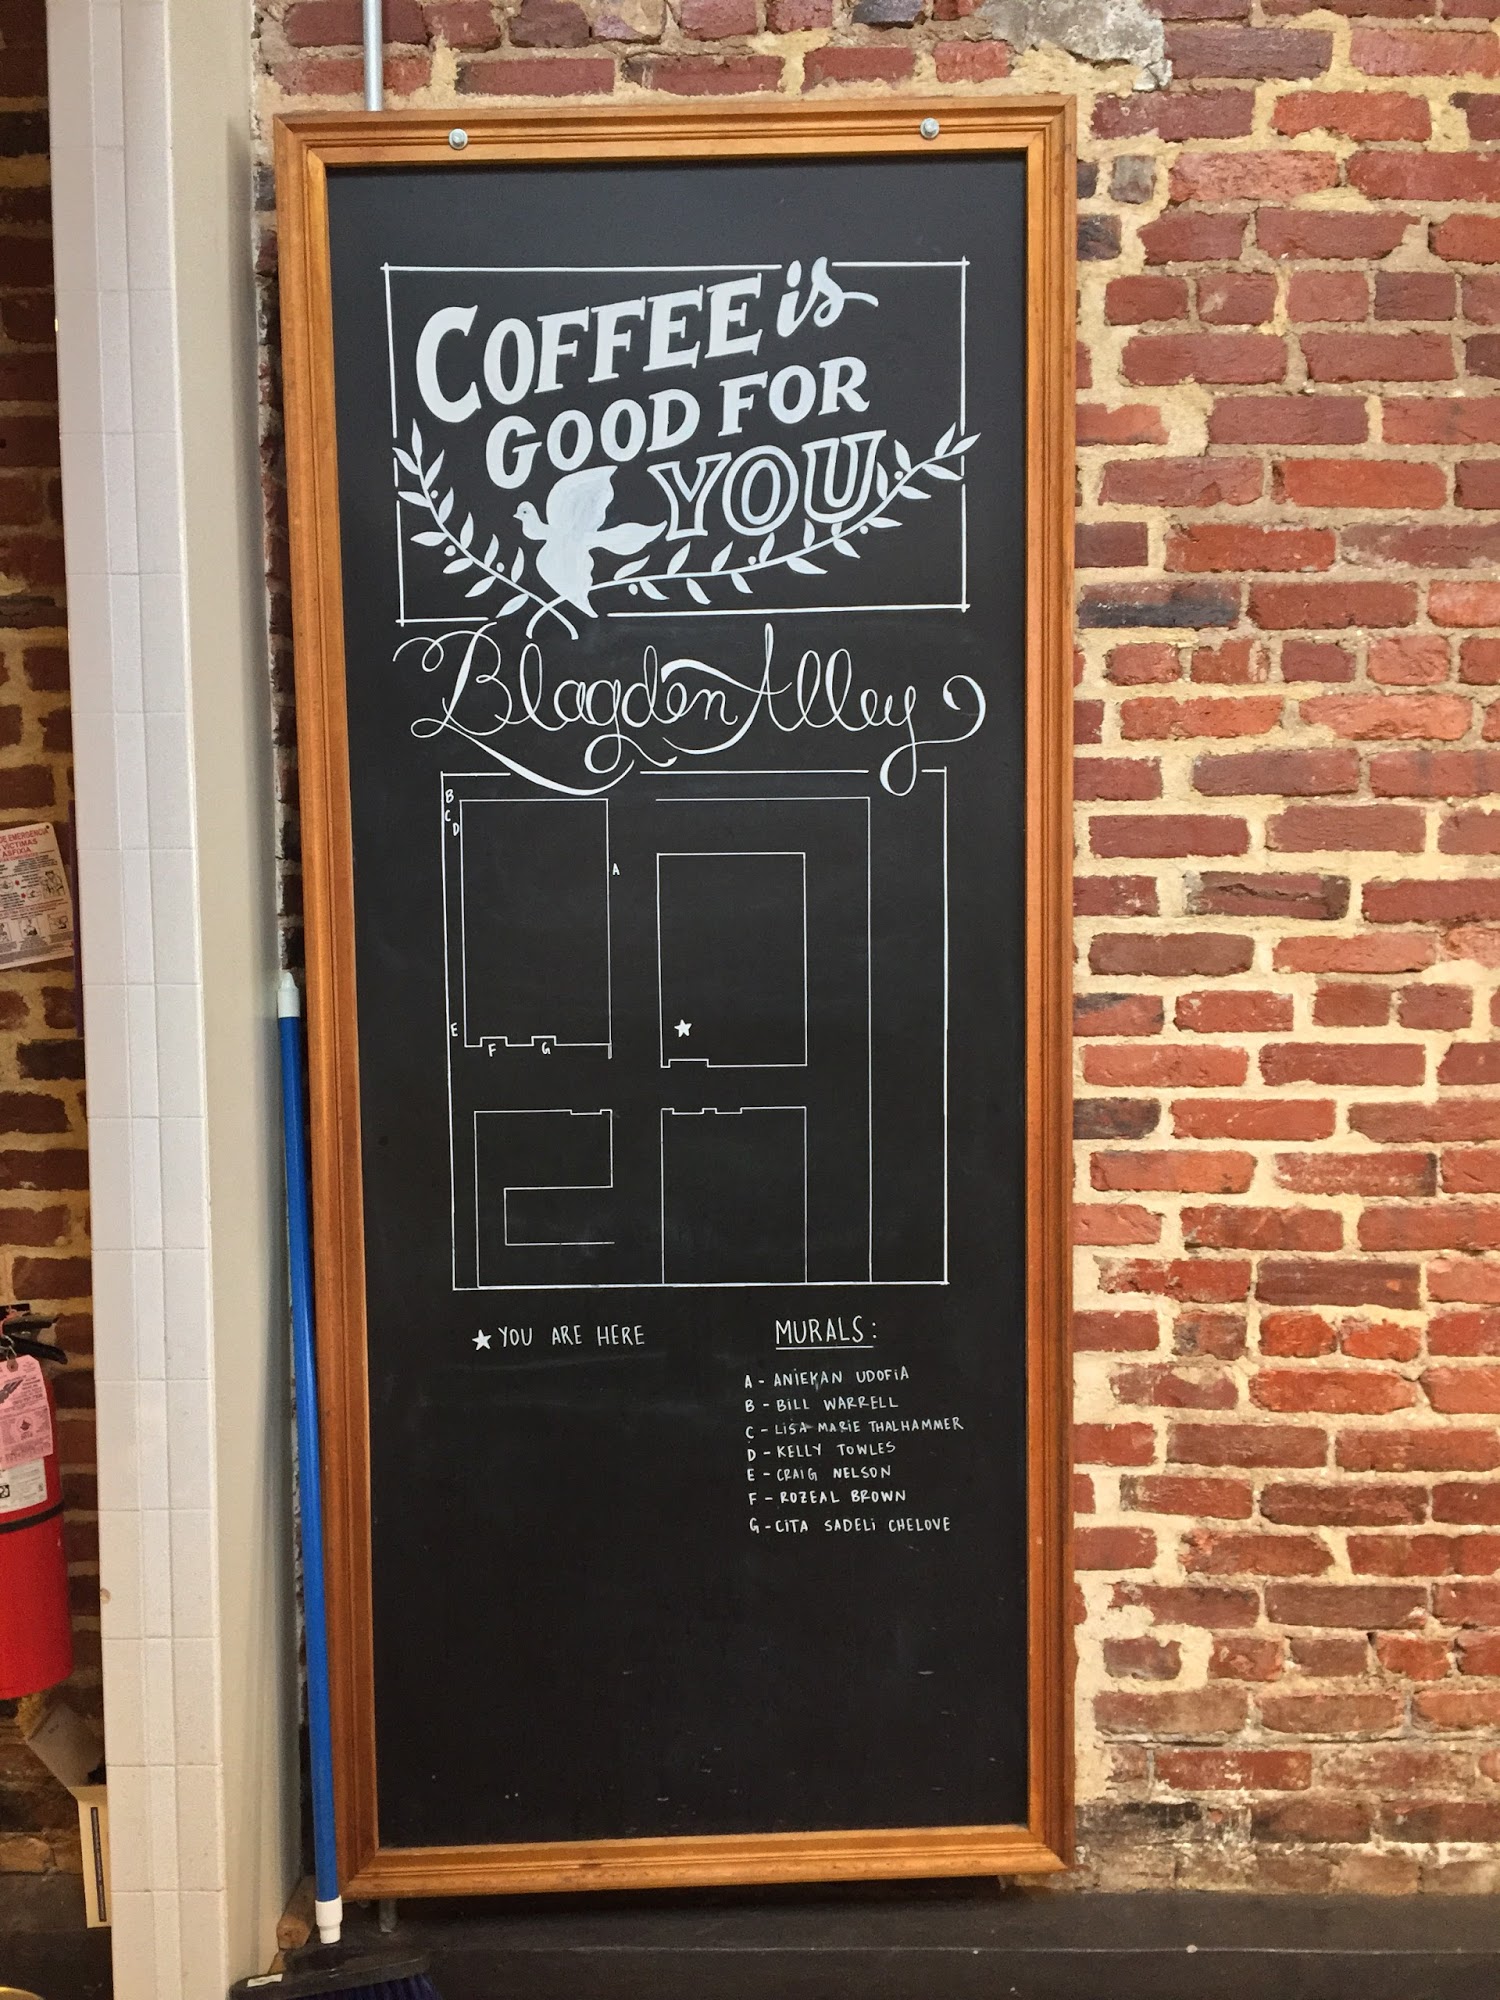 COFFEE is
GOOD FOR
YOU
Blagden Alley
B
C
D
A
E
F
G
★ YOU ARE HERE
MURALS:
A - ANIEKAN UDOFIA
B - BILL WARRELL
C - LISA MARIE THALHAMMER
D - KELLY TOWLES
E - CRAIG NELSON
F - ROZEAL BROWN
G - CITA SADELI CHELOVE
DE EMERGENCIA
VÍCTIMAS
ASFIXIA